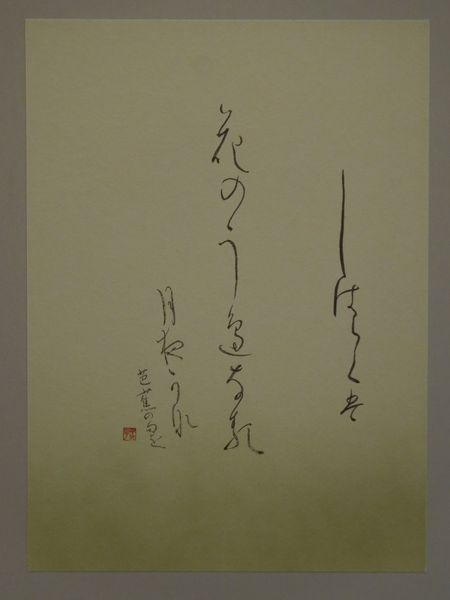 しはらくは
花のうへなる
月夜かな
芭蕉の句を